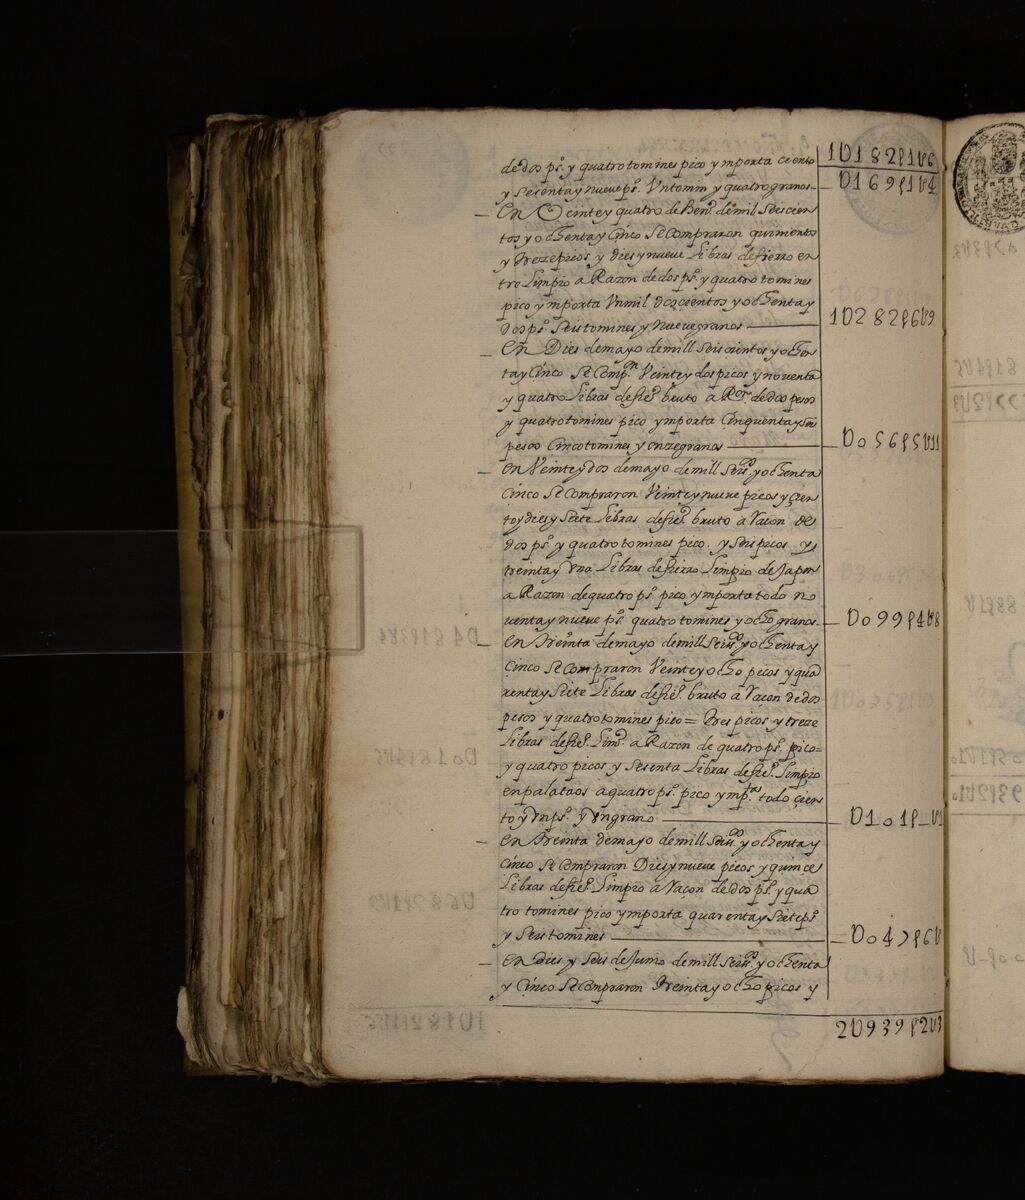 1U182p1U6
de dos ps. y quatro tomines pico y mporta ciento
y sesenta y nueve ps. Un tomin y quatro granos — U169p1U4
— En Veinte y quatro de Hen.o de mil seiscien
tos y ochenta y Cinco se Compraron quinientos
y treze picos y dies y nueve Libras de fierro en
tre Limpio a Razon de dos ps. y quatro tomines
pico y mporta Un mil doscientos y ochenta y
dos ps. seis tomines y nueve granos — 1U282p6U9
— En Dies de mayo de mill seiscientos y ochen
ta y Cinco se Comp.n Veinte y dos picos y noventa
y quatro Libras de fie.o bruto a R.on de dos pesos
y quatro tomines pico ymporta Cinquenta y seis
pesos Cinco tomines y onze granos — U056p5U11
— En Veinte y dos de mayo de mill seis.os y ochenta
Cinco se Compraron Veinte y nueve picos y çien
to y dies y siete Libras de fie.o bruto a raçon de
dos ps. y quatro tomines pico. y seis picos y
treinta y Una Libras de fierro Limpio de Japon
a Razon de quatro ps. pico y mporta todo no
venta y nueve ps. quatro tomines y ocho granos — U099p4U8
— En treinta de mayo de mill seis.os y ochenta y
Çinco se Compraron Veinte y ocho picos y qua
renta y siete Libras de fie.o bruto a raçon de dos
pesos y quatro tomines pico = tres picos y treze
Libras de fie.o Limp.o a Razon de quatro ps. pico =
y quatro picos y sesenta Libras de fie.o Limpio
en palataos a quatro ps. pico y mp.ta todo çien
to y Un ps. y Un grano — U101p_U1
— En treinta de mayo de mill seis.os y ochenta y
Cinco se Compraron Dies y nueve picos y quince
Libras de fie.o Limpio a raçon de dos ps. y qua
tro tomines pico y mporta quarenta y siete ps.
y seis tomines — U047p6U
— En dies y seis de Junio de mill seis.os y ochenta
y Çinco se Compraron treinta y ocho picos y
2U939p2U3